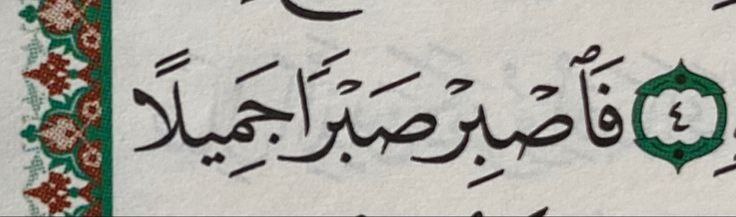 ٤ فَٱصۡبِرۡ صَبۡرٗا جَمِيلًا